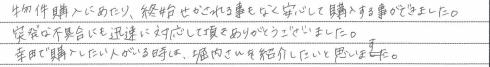 物件購入にあたり、終始せかされる事もなく安心して購入する事ができました。
突発な不具合にも迅速に対応して頂きありがとうございました。
幸田で購入したい人がいる時は、堀内さんを紹介したいと思いました。